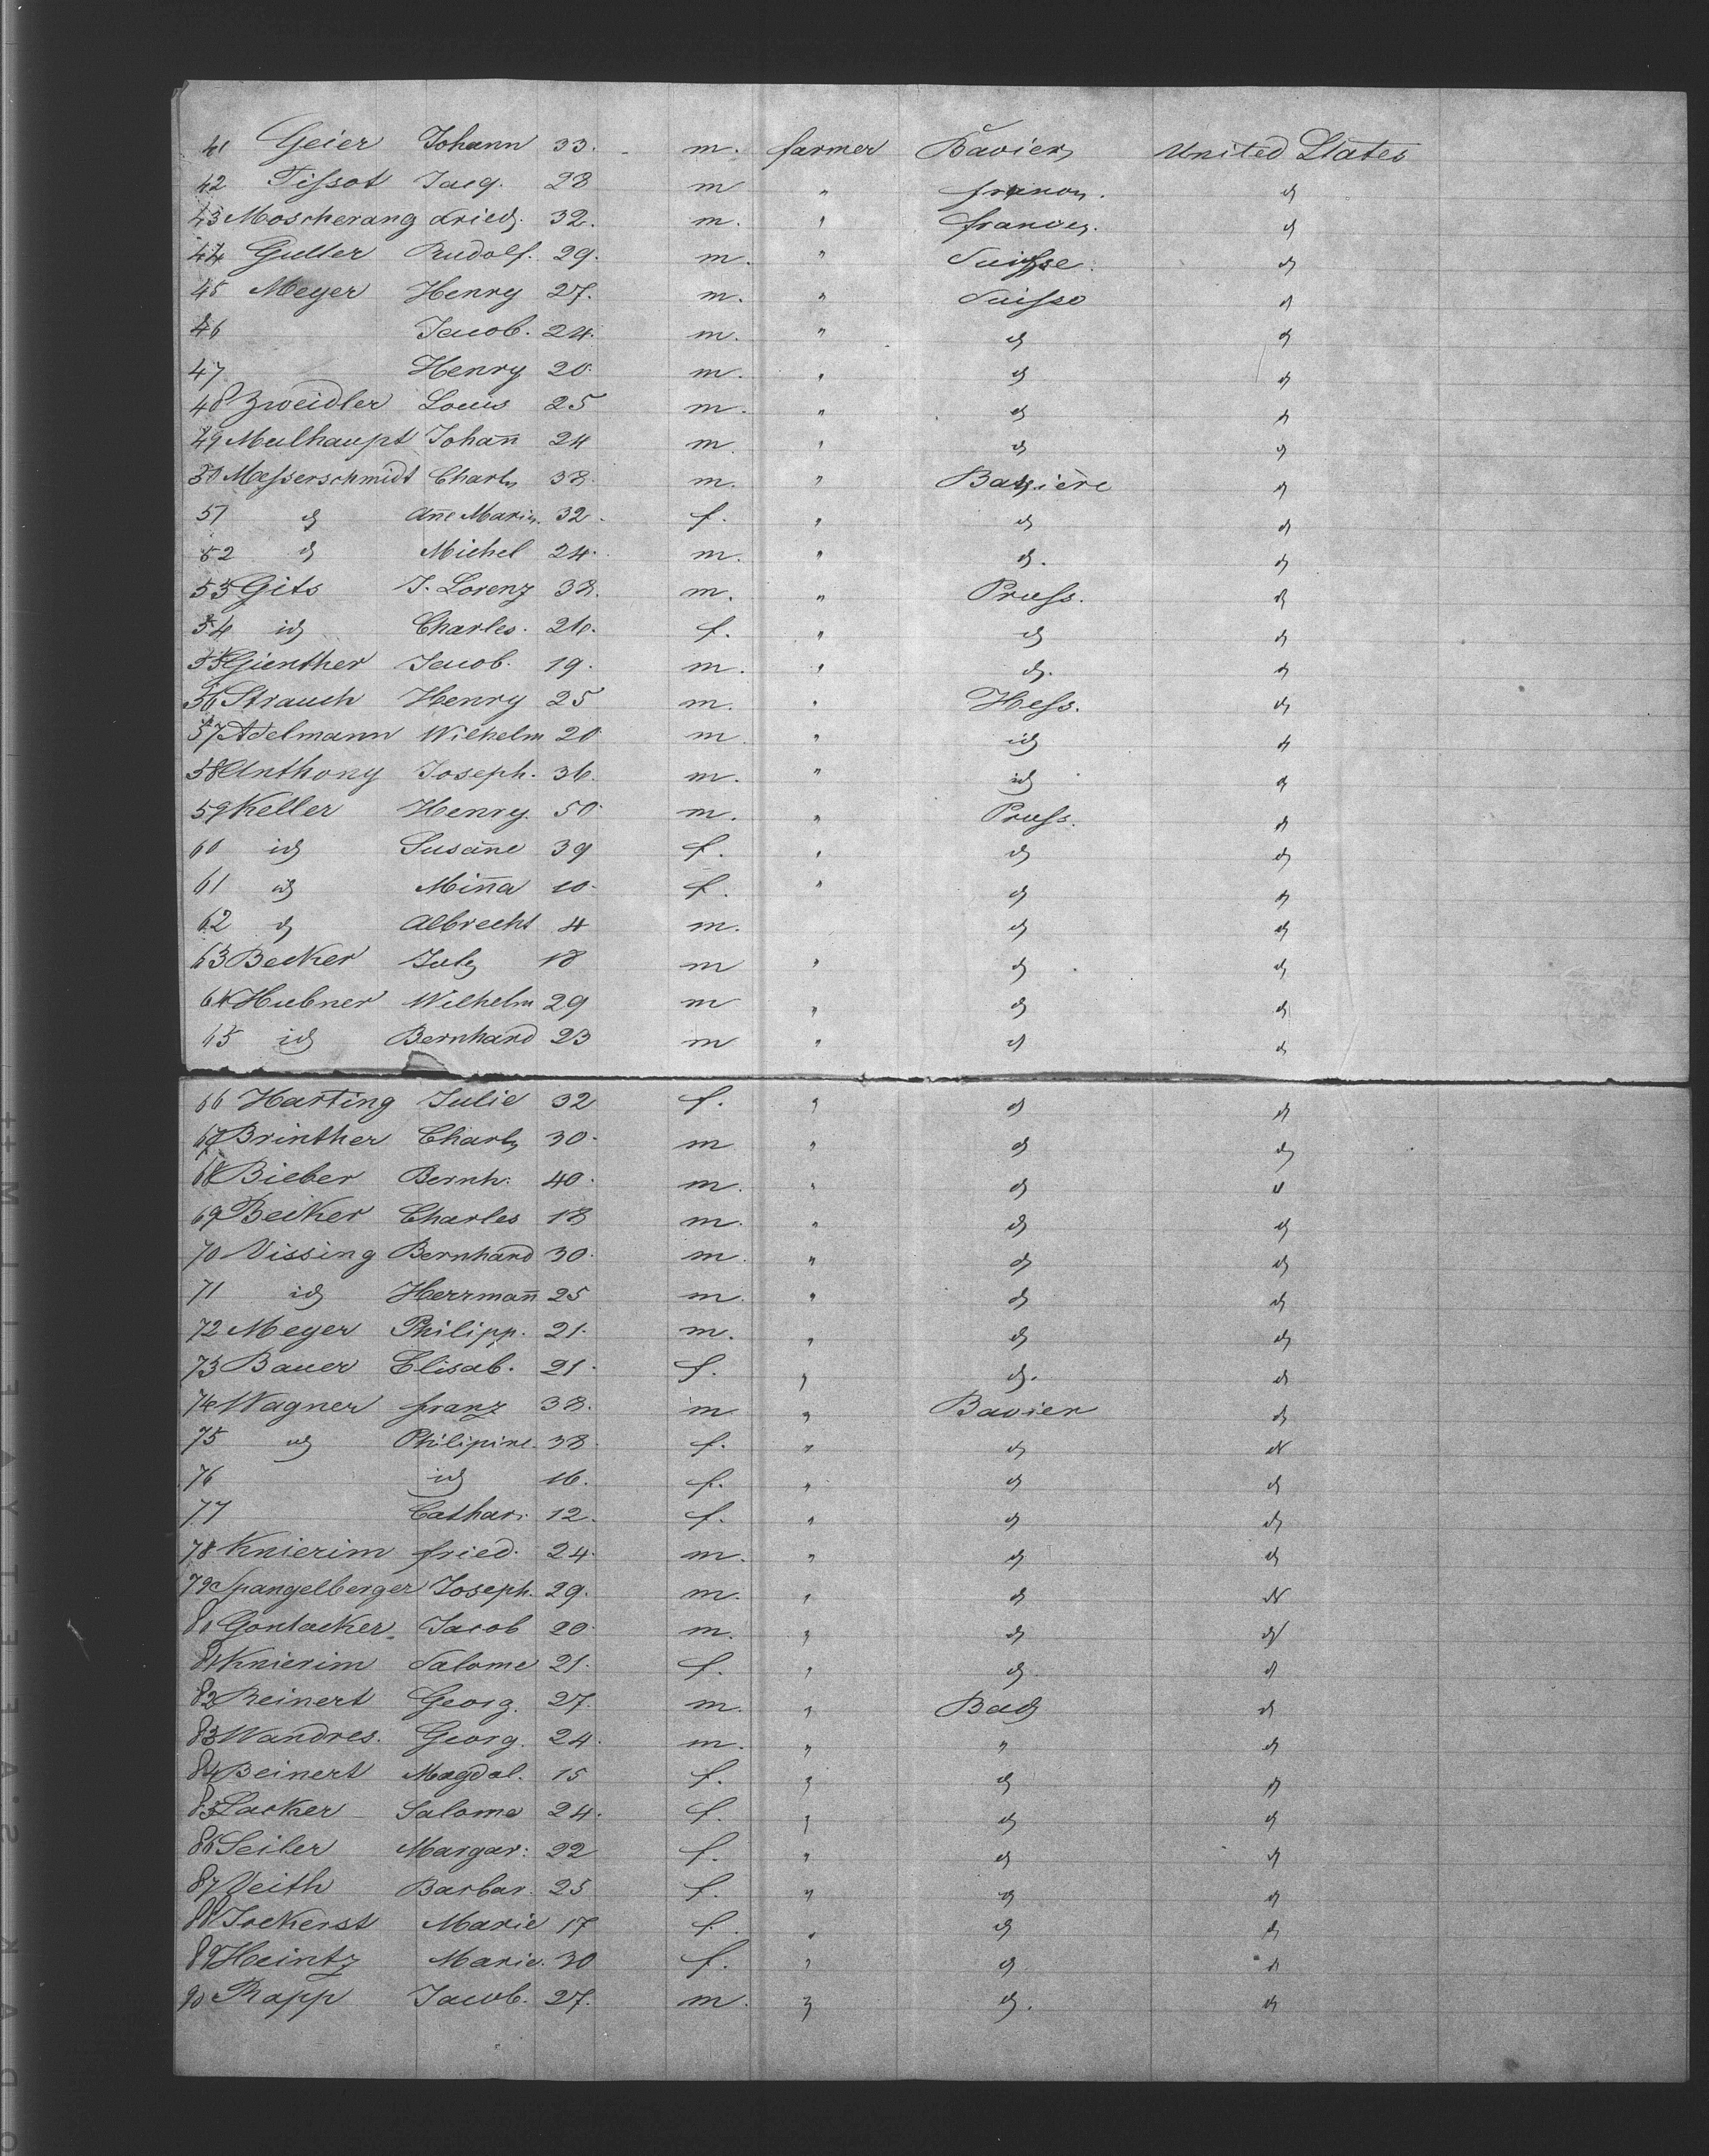 41 Geier Johann 33. m. farmer Bavier, United States
42 Tissot Jacq. 28 m " id
43 Moscherang Fried. 32. m. " france. id
44 Guller Rudolf. 29. m. " Suisse. id
45 Meyer Henry 27. m. " Suisse id
46 Jacob. 24. m. " id id
47 Henry 20. m. " id id
48 Zweidler Louis 25 m. " id id
49 Mulhaupt Johan̄ 24 m. " id id
50 Messerschmidt Charls 38. m. " Bavière id
51 id An̄e Marie. 32. f. " id id
52 id Michel 24. m. " id. id
53 Gits J. Lorenz 38. m. " Pruss. id
54 id Charles. 26. f. " id id
55 Gienther Jacob. 19. m. " id. id
56 Strauch Henry 25 m. " Hess. id
57 Adelmann Wilhelm 20 m " id id
58 Anthony Joseph. 36. m. " id id
59 Keller Henry. 50. m. " Pruss. id
60 id Susan̄e 39 f. " id id
61 id Min̄a 10. f. " id id
62 id Albrecht 4 m. id id
63 Becker 18 m " id id
64 Hubner Wilhelm 29 m " id id
65 id Bernhard 23 m " id id
66 Harting Julie 32 f. " id id
67 Brinther Charls 30. m " id id
68 Bieber Bernh. 40. m. " id id
69 Becker Charles 18 m. " id id
70 Vissing Bernhard 30. m. " id id
71 id Herrman̄ 25 m. " id id
72 Meyer Philipp. 21. m. " id id
73 Bauer Elisab. 21. f. " id. id
74 Wagner franz 38. m " Bavier id
75 id Philipine. 38. f. " id id
76 id 16. f. " id id
77 Cathar. 12. f. " id id
78 Knierim fried. 24. m. " id id
79 Spangelberger Joseph. 29. m. " id id
80 Gontacker. Jacob 20. m. " id id
81 Knierim Salome 21. f. " id id
82 Reinert Georg. 27. m. " Bad id
83 Wandres. Georg. 24. m. " " id
84 Beinert Magdal. 15 f. " id id
85 Lacker Salome 24. f. " id id
86 Seiler Margar: 22 f. " id id
87 Veith Barbar. 25 f. " id id
88 Jockerst Marie 17 f. " id id
89 Heintz Marie. 30 f. " id id
90 Rapp Jacob. 27. m. " id. id